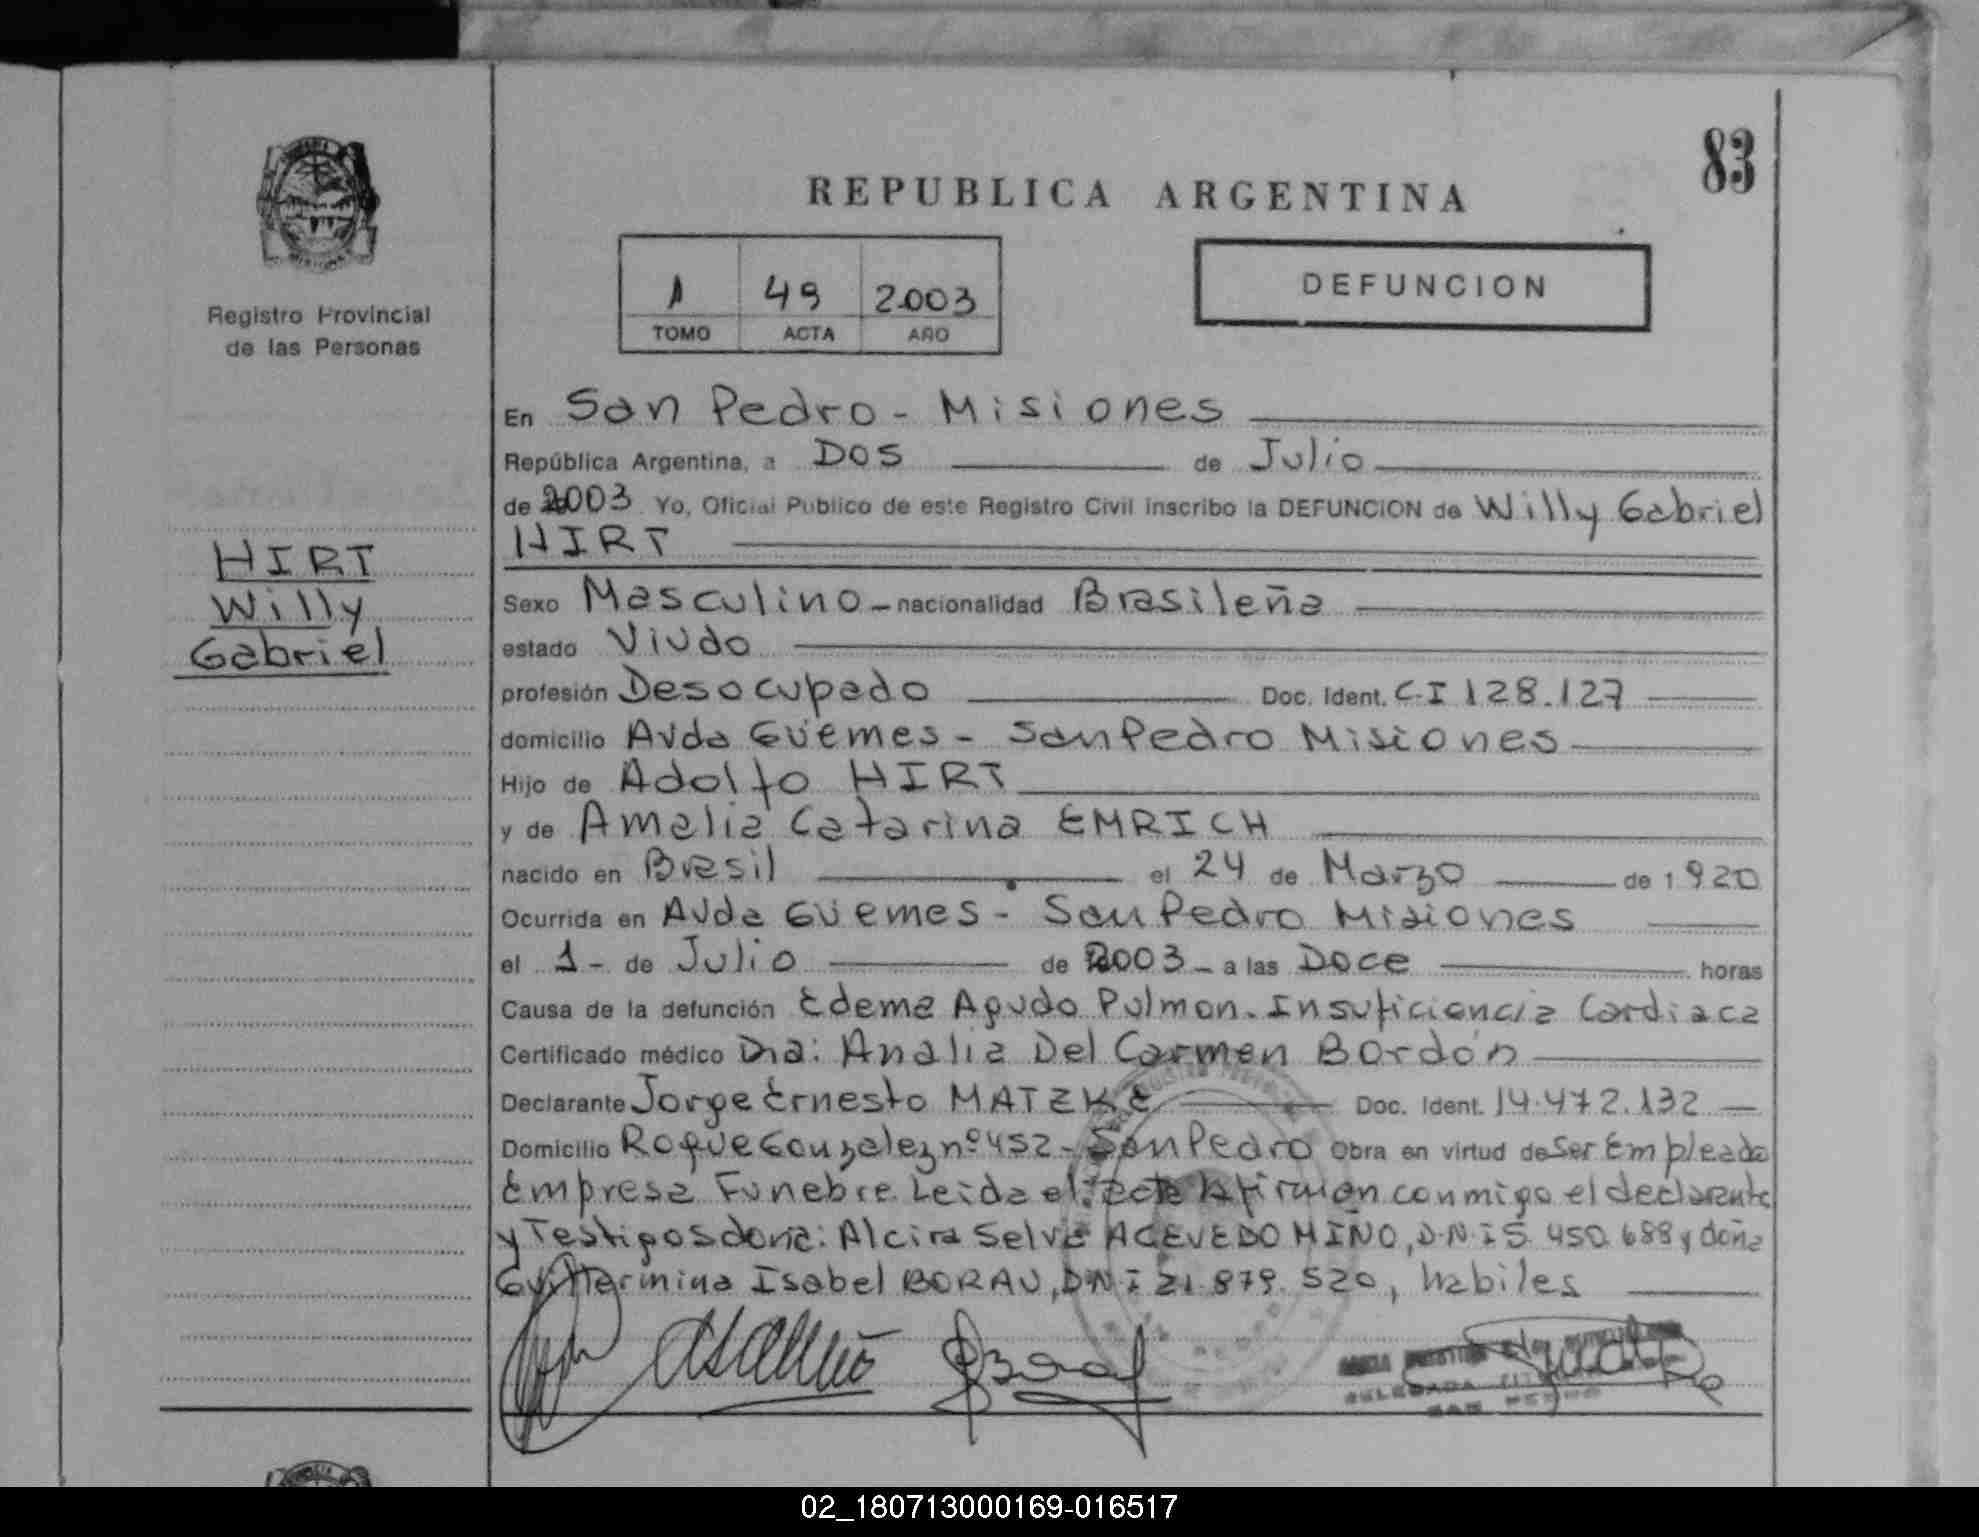 83
REPUBLICA ARGENTINA
Registro Provincial
de las Personas
1 49 2003
TOMO ACTA AÑO
DEFUNCION
HIRT
Willy
Gabriel
En San Pedro - Misiones
República Argentina, a Dos de Julio
de 2003 Yo, Oficial Publico de este Registro Civil inscribo la DEFUNCION de Willy Gabriel
HIRT
Sexo Masculino - nacionalidad Brasileña
estado Viudo
profesión Desocupado Doc. Ident. C.I 128.127
domicilio Avda Güemes - San Pedro Misiones
Hijo de Adolfo HIRT
y de Amelia Catarina EMRICH
nacido en Brasil el 24 de Marzo de 1920
Ocurrida en Avda Güemes - San Pedro Misiones
el 1 - de Julio de 2003 - a las Doce horas
Causa de la defunción Edema Agudo Pulmon. Insuficiencia Cardiaca
Certificado médico Dra: Analia Del Carmen Bordón
Declarante Jorge Ernesto MATZKE Doc. Ident. 14.472.132
Domicilio Roque Gonzalez nº 452 - San Pedro Obra en virtud de Ser Empleado
Empresa Funebre Leida el acta firman conmigo el declarante
y Testigos doña: Alcira Selva ACEVEDO MIÑO, D.N.I 5.450.688 y doña
Guillermina Isabel BORAU, D.N.I 21.879.520, habiles
DELEGADA
SAN PEDRO
02_180713000169-016517